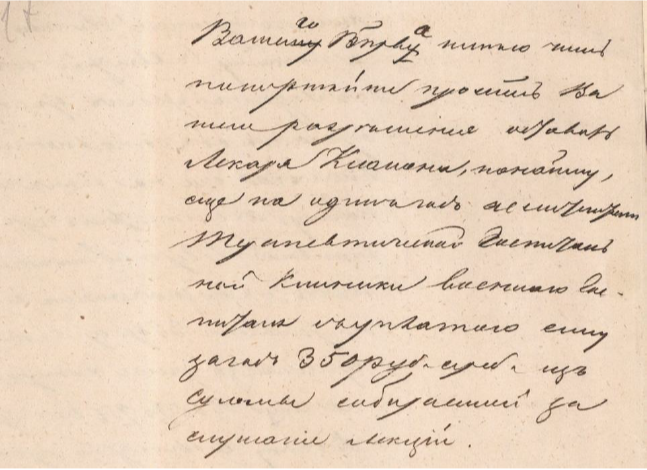 17
Вашего Вбрва имѣю честь
покорнѣйше просить Ва
шего разрешенія оставить
Лекаря Кнапина, по найму,
еще на одинъ годъ ассистентомъ
Терапевтической Госпиталь
ной Клиники военнаго Гос-
питаля съ уплатою ему
за годъ 350 руб. сереб. изъ
суммы собираемой за
слушаніе лекцій.